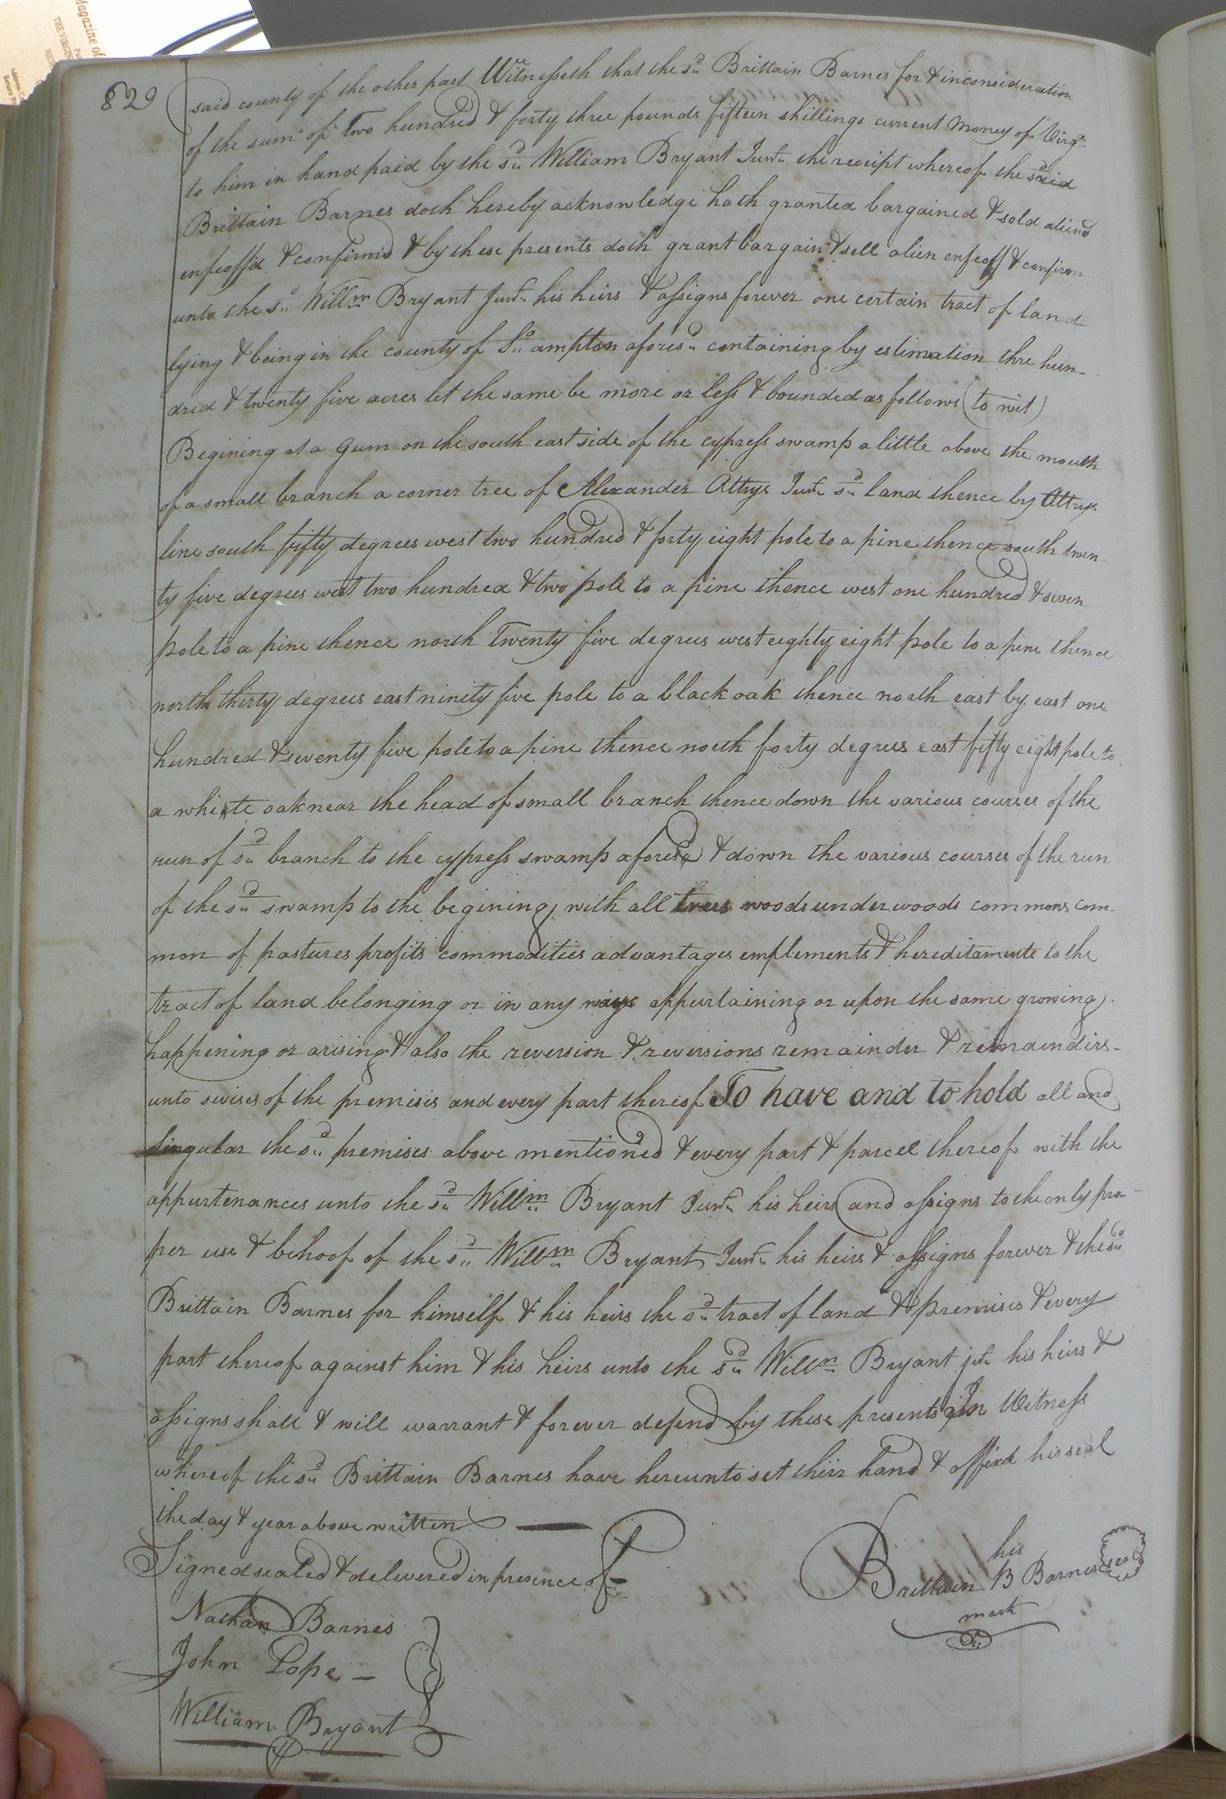 Magazine of
THE VIRGIN
829
said county of the other part Witnesseth that the sd. Brittain Barnes for & inconsideration
of the sum of Two hundred & forty three pounds fifteen shillings current Money of Virga.
to him in hand paid by the sd. William Bryant Junr. the receipt whereof the said
Brittain Barnes doth hereby acknowledge hath granted bargained & sold aliend
enfeoff'd & confirmd & by these presents doth grant bargain & sell alien enfeoff & confirm
unto the sd. Willm Bryant Junr. his heirs & assigns forever one certain tract of land
lying & being in the county of So. ampton aforesd. containing by estimation thre hun-
dred & twenty five acres let the same be more or less & bounded as follows (to wit)
Begining at a gum on the south east side of the cypress swamp a little above the mouth
of a small branch a corner tree of Alexander Attrys Junr. sd. land thence by Attrys
line south fifty degrees west two hundred & forty eight pole to a pine thence south twen
ty five degrees west two hundred & two pole to a pine thence west one hundred & seven
pole to a pine thence north Twenty five degrees west eighty eight pole to a pine thence
north thirty degrees east ninety five pole to a black oak thence north east by east one
hundred & seventy five pole to a pine thence north forty degrees east fifty eight pole to
a white oak near the head of small branch thence down the various courses of the
run of sd. branch to the cypress swamp aforesd. & down the various courses of the run
of the sd. swamp to the begining, with all trees woods under woods commons com-
mon of pastures profits commodities advantages emplements & hereditaments to the
tract of land belonging or in any ways appurtaining or upon the same growing
happening or arising & also the reversion & reversions remainder & remainders-
unto sivises of the premisis and every part thereof To have and to hold all and
Singular the sd. premises above mentioned & every part & parcel thereof with the
appurtenances unto the sd. Willm Bryant Junr. his heirs and assigns to the only pro-
per use & behoof of the sd. Willm Bryant Junr. his heirs & assigns forever & the sd.
Brittain Barnes for himself & his heirs the sd. tract of land & premises & every
part thereof against him & his heirs unto the sd. Willm Bryant jr. his heirs &
assigns shall & will warrant & forever defend by these presents In Witness
whereof the sd. Brittain Barnes have hereunto set their hand & affixd his seal
the day & year above written
Signed sealed & delivered in presence of-
Nathan Barnes
John Pope -
William Bryant
his
Brittain B Barnes seal
mark